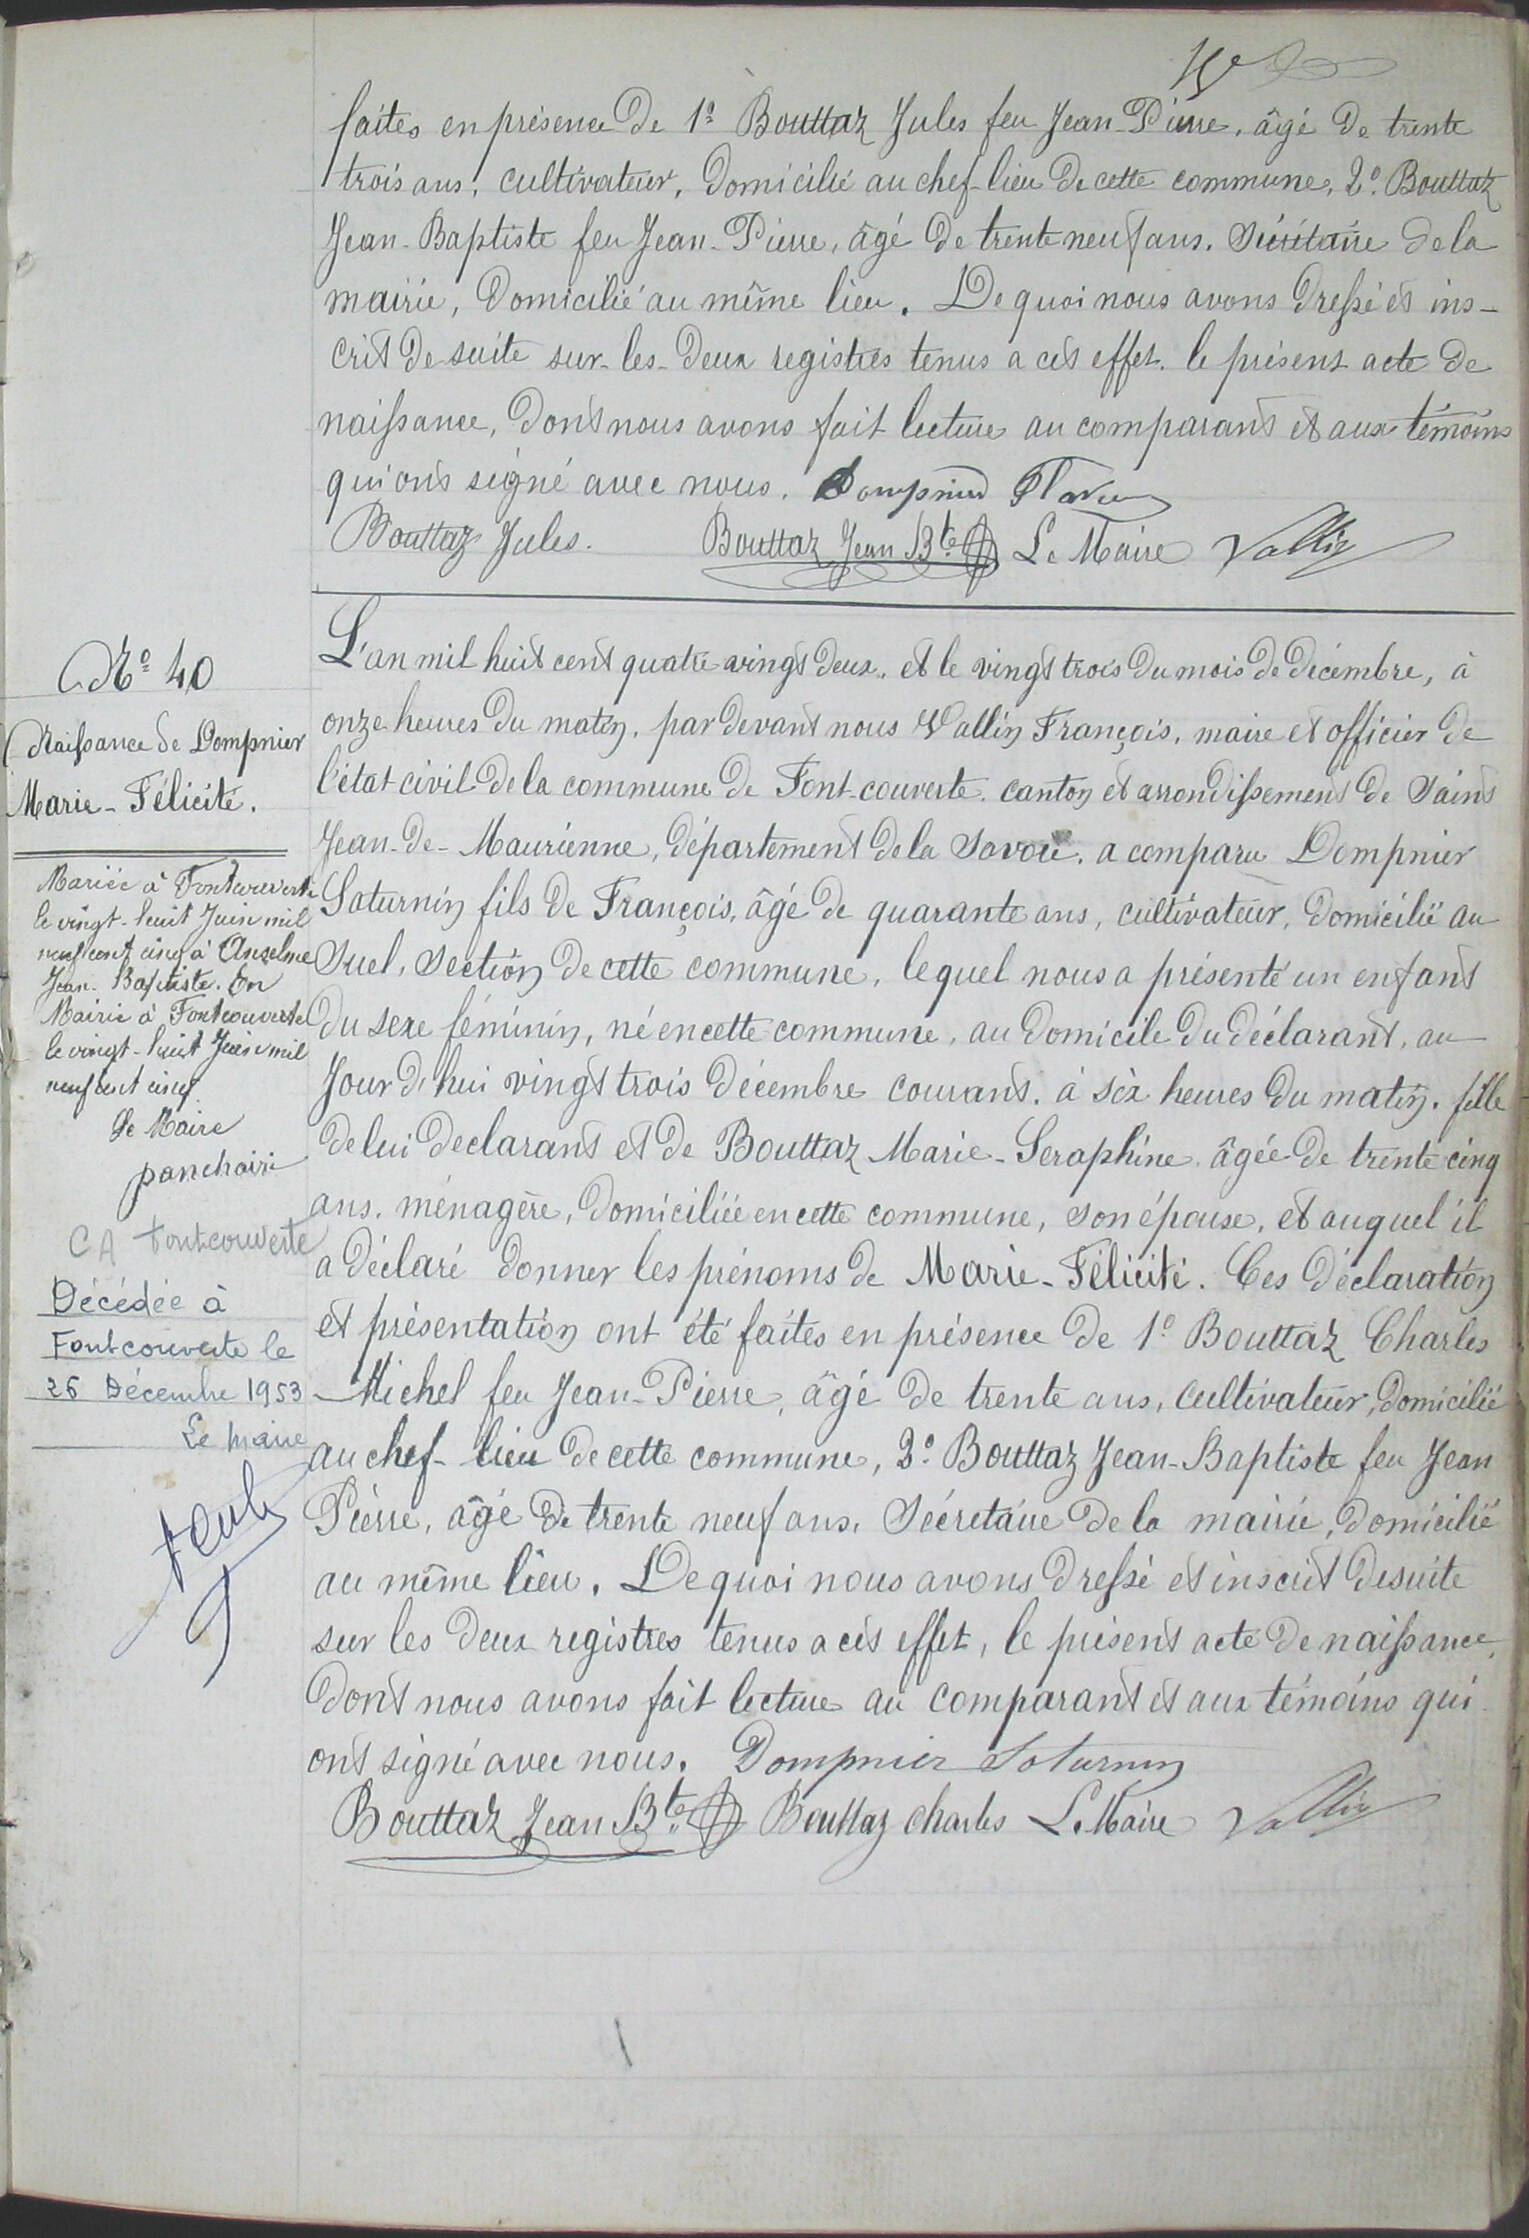 faites en présence de 1º Bouttaz Jules feu Jean-Pierre, âgé de trente
trois ans, cultivateur, domicilié au chef-lieu de cette commune, 2º. Bouttaz
Jean-Baptiste feu Jean-Pierre, âgé de trente neuf ans, Sécrétaire de la
mairie, domicilié au même lieu. De quoi nous avons dressé et ins-
crit de suite sur-les-deux registres tenus a cet effet. le présent acte de
naissance, dont nous avons fait lecture au comparant et aux témoins
qui ont signé avec nous. Dompnier
Bouttaz Jules. Bouttaz Jean Bte Le Maire Vallin
Nº 40
Naissance de Dompnier
Marie-Félicité.
Mariée à Fontcouverte
le vingt-huit Juin mil
neuf cent cinq à Anselme
Jean-Baptiste. En
Mairie à Fontcouverte
le vingt-huit Juin mil
neuf cent cinq.
Le Maire
CA Fontcouverte
Décédée à
Fontcouverte le
26 Décembre 1953
Le maire
L'an mil huit cent quatre vingt deux, et le vingt trois du mois de décembre, à
onze heures du matin, par devant nous Vallin François, maire et officier de
l'état civil de la commune de Font-couverte, canton et arrondissement de Saint
Jean-de-Maurienne, département de la Savoie, a comparu Dompnier
Saturnin fils de François, âgé de quarante ans, cultivateur, domicilié au
Suel, Section de cette commune, lequel nous a présenté un enfant
du sexe féminin, né en cette commune, au domicile du déclarant, au
Jour d'hui vingt trois décembre courant, à six heures du matin, fille
de lui declarant et de Bouttaz Marie-Seraphine, âgée de trente cinq
ans, ménagère, domiciliée en cette commune, son épouse, et auquel il
a déclaré donner les prénoms de Marie-Félicité. Ces déclaration
et présentation ont été faites en présence de 1º Bouttaz Charles
Michel feu Jean-Pierre, âgé de trente ans, cultivateur, domicilié
au chef-lieu de cette commune, 2º. Bouttaz Jean-Baptiste feu Jean
Pierre, âgé de trente neuf ans, Sécretaire de la mairie, domicilié
au même lieu. De quoi nous avons dressé et inscrit desuite
sur les deux registres tenus a cet effet, le présent acte de naissance,
dont nous avons fait lecture au comparant et aux témoins qui
ont signé avec nous. Dompnier Saturnin
Bouttaz Jean Bte Bouttaz Charles Le Maire Vallin